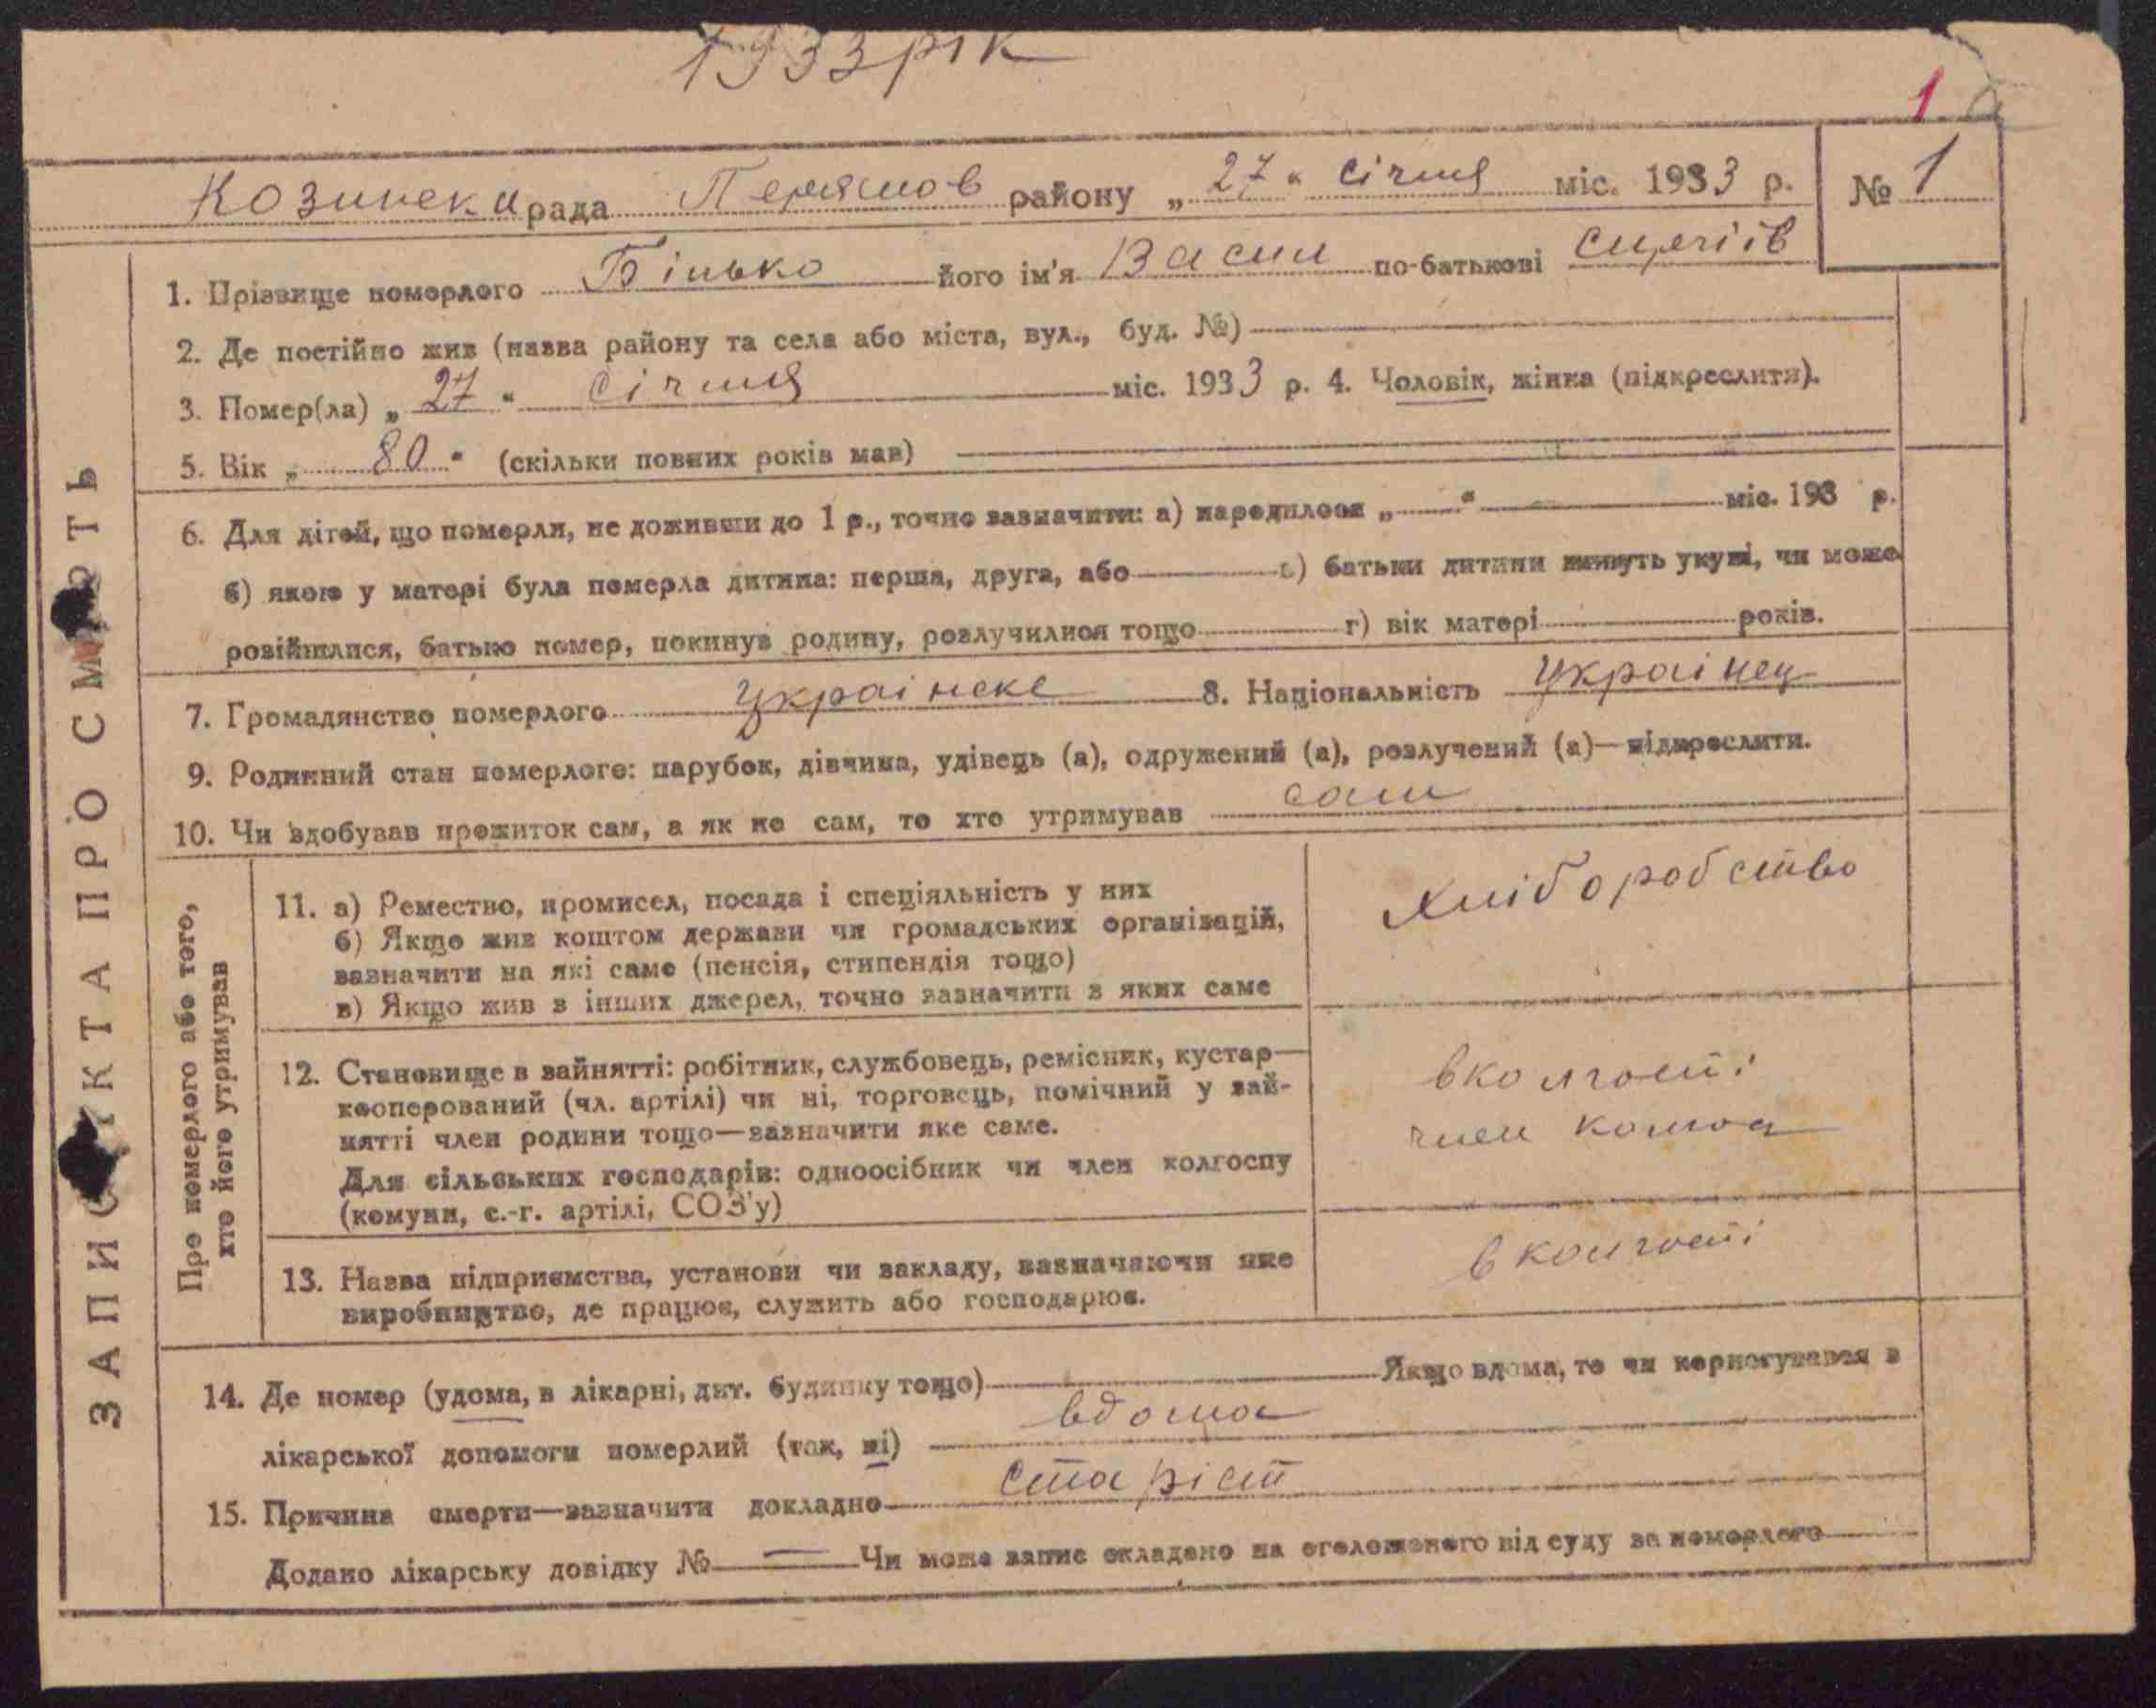 1933 рік
1
Козинска рада Переяслов району „ 27 “ січня міс. 1933 р. № 1
1. Прізвище померлого Білько його ім'я Васил по-батькові
2. Де постійно жив (назва району та села або міста, вул., буд. №)
3. Помер(ла) „ 27 “ січня міс. 1933 р. 4. Чоловік, жінка (підкреслити).
5. Вік „ 80 “ (скільки повних років мав)
6. Для дітей, що померли, не доживши до 1 р., точно зазначити: а) народилося „ “ міс. 193 р.
б) якою у матері була померла дитина: перша, друга, або в) батьки дитини живуть укупі, чи може
розійшлися, батько помер, покинув родину, розлучилися тощо г) вік матері років.
7. Громадянство померлого українске 8. Національність українец
9. Родинний стан померлого: парубок, дівчина, удівець (а), одружений (а), розлучений (а)—підкреслити.
10. Чи здобував прожиток сам, а як не сам, то хто утримував сам
ЗАПИСКА ПРО СМЕРТЬ
Про померлого або того,
хто його утримував
11. а) Ремество, промисел, посада і спеціяльність у них
б) Якщо жив коштом держави чи громадських організацій,
зазначити на які саме (пенсія, стипендія тощо)
в) Якщо жив з інших джерел, точно зазначити з яких саме
хліборобство
12. Становище в зайнятті: робітник, службовець, ремісник, кустар—
кооперований (чл. артілі) чи ні, торговець, помічний у зай-
нятті член родини тощо—зазначити яке саме.
Для сільських господарів: одноосібник чи член колгоспу
(комуни, с.-г. артілі, СОЗ'у)
в колгоспі
член
13. Назва підприємства, установи чи закладу, зазначаючи яке
виробництво, де працює, служить або господарює.
в колгоспі
14. Де помер (удома, в лікарні, дит. будинку тощо) Якщо вдома, то чи користувався з
вдома
лікарської допомоги померлий (так, ні)
15. Причина смерти—зазначити докладно старіст
Додано лікарську довідку № — Чи може запис складено на оголошеного від суду за померлого